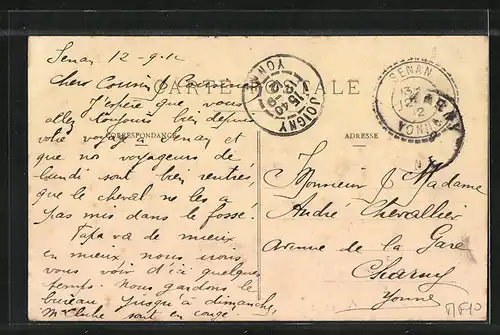 Senan 12-9-12
Chers Cousin & Cousine
CARTE POSTALE
J'espère que vous
allez toujours bien depuis
CORRESPONDANCE
votre voyage à Senan et
que nos voyageurs de
lundi sont bien rentrés,
que le cheval ne les a
pas mis dans le fossé.
Papa va de mieux
en mieux, nous irons
vous voir d'ici quelque
temps. Nous gardons le
bureau jusqu'à dimanche,
sont en congé
JOIGNY
YONNE
15 40
SENAN
YONNE
12
ADRESSE
Monsieur & Madame
André Chevallier
avenue de la Gare
Charny
Yonne